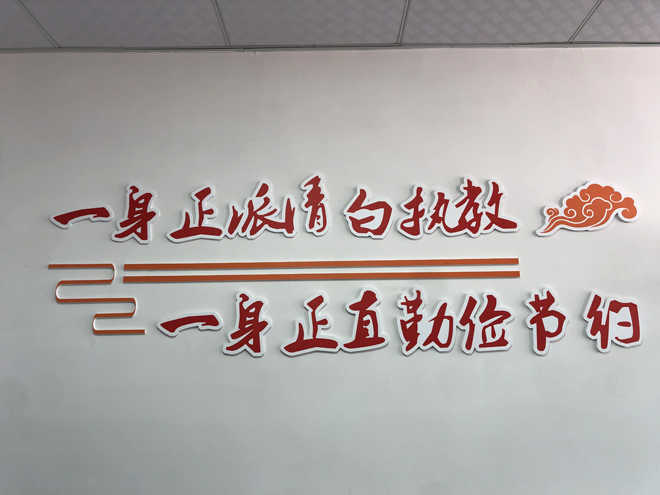 一身正派清白执教
一身正直勤俭节约